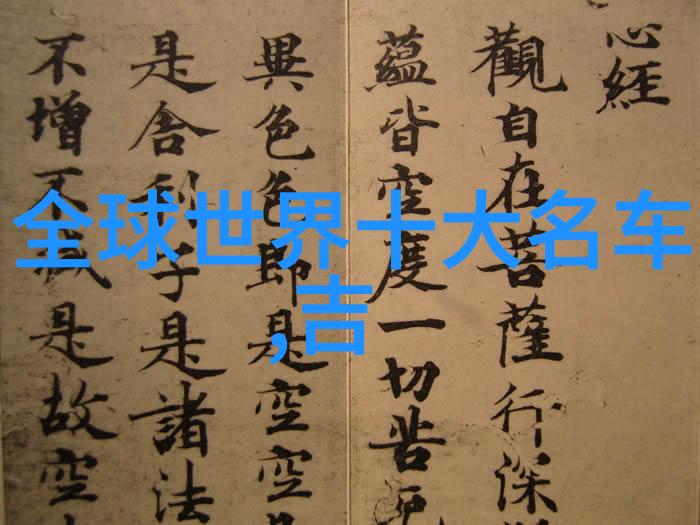 心經
觀自在菩薩行深
蘊皆空度一切苦厄
異色色即是空空
是舍利子是諸法
不增不減是故空
全球世界十大名车
,吉